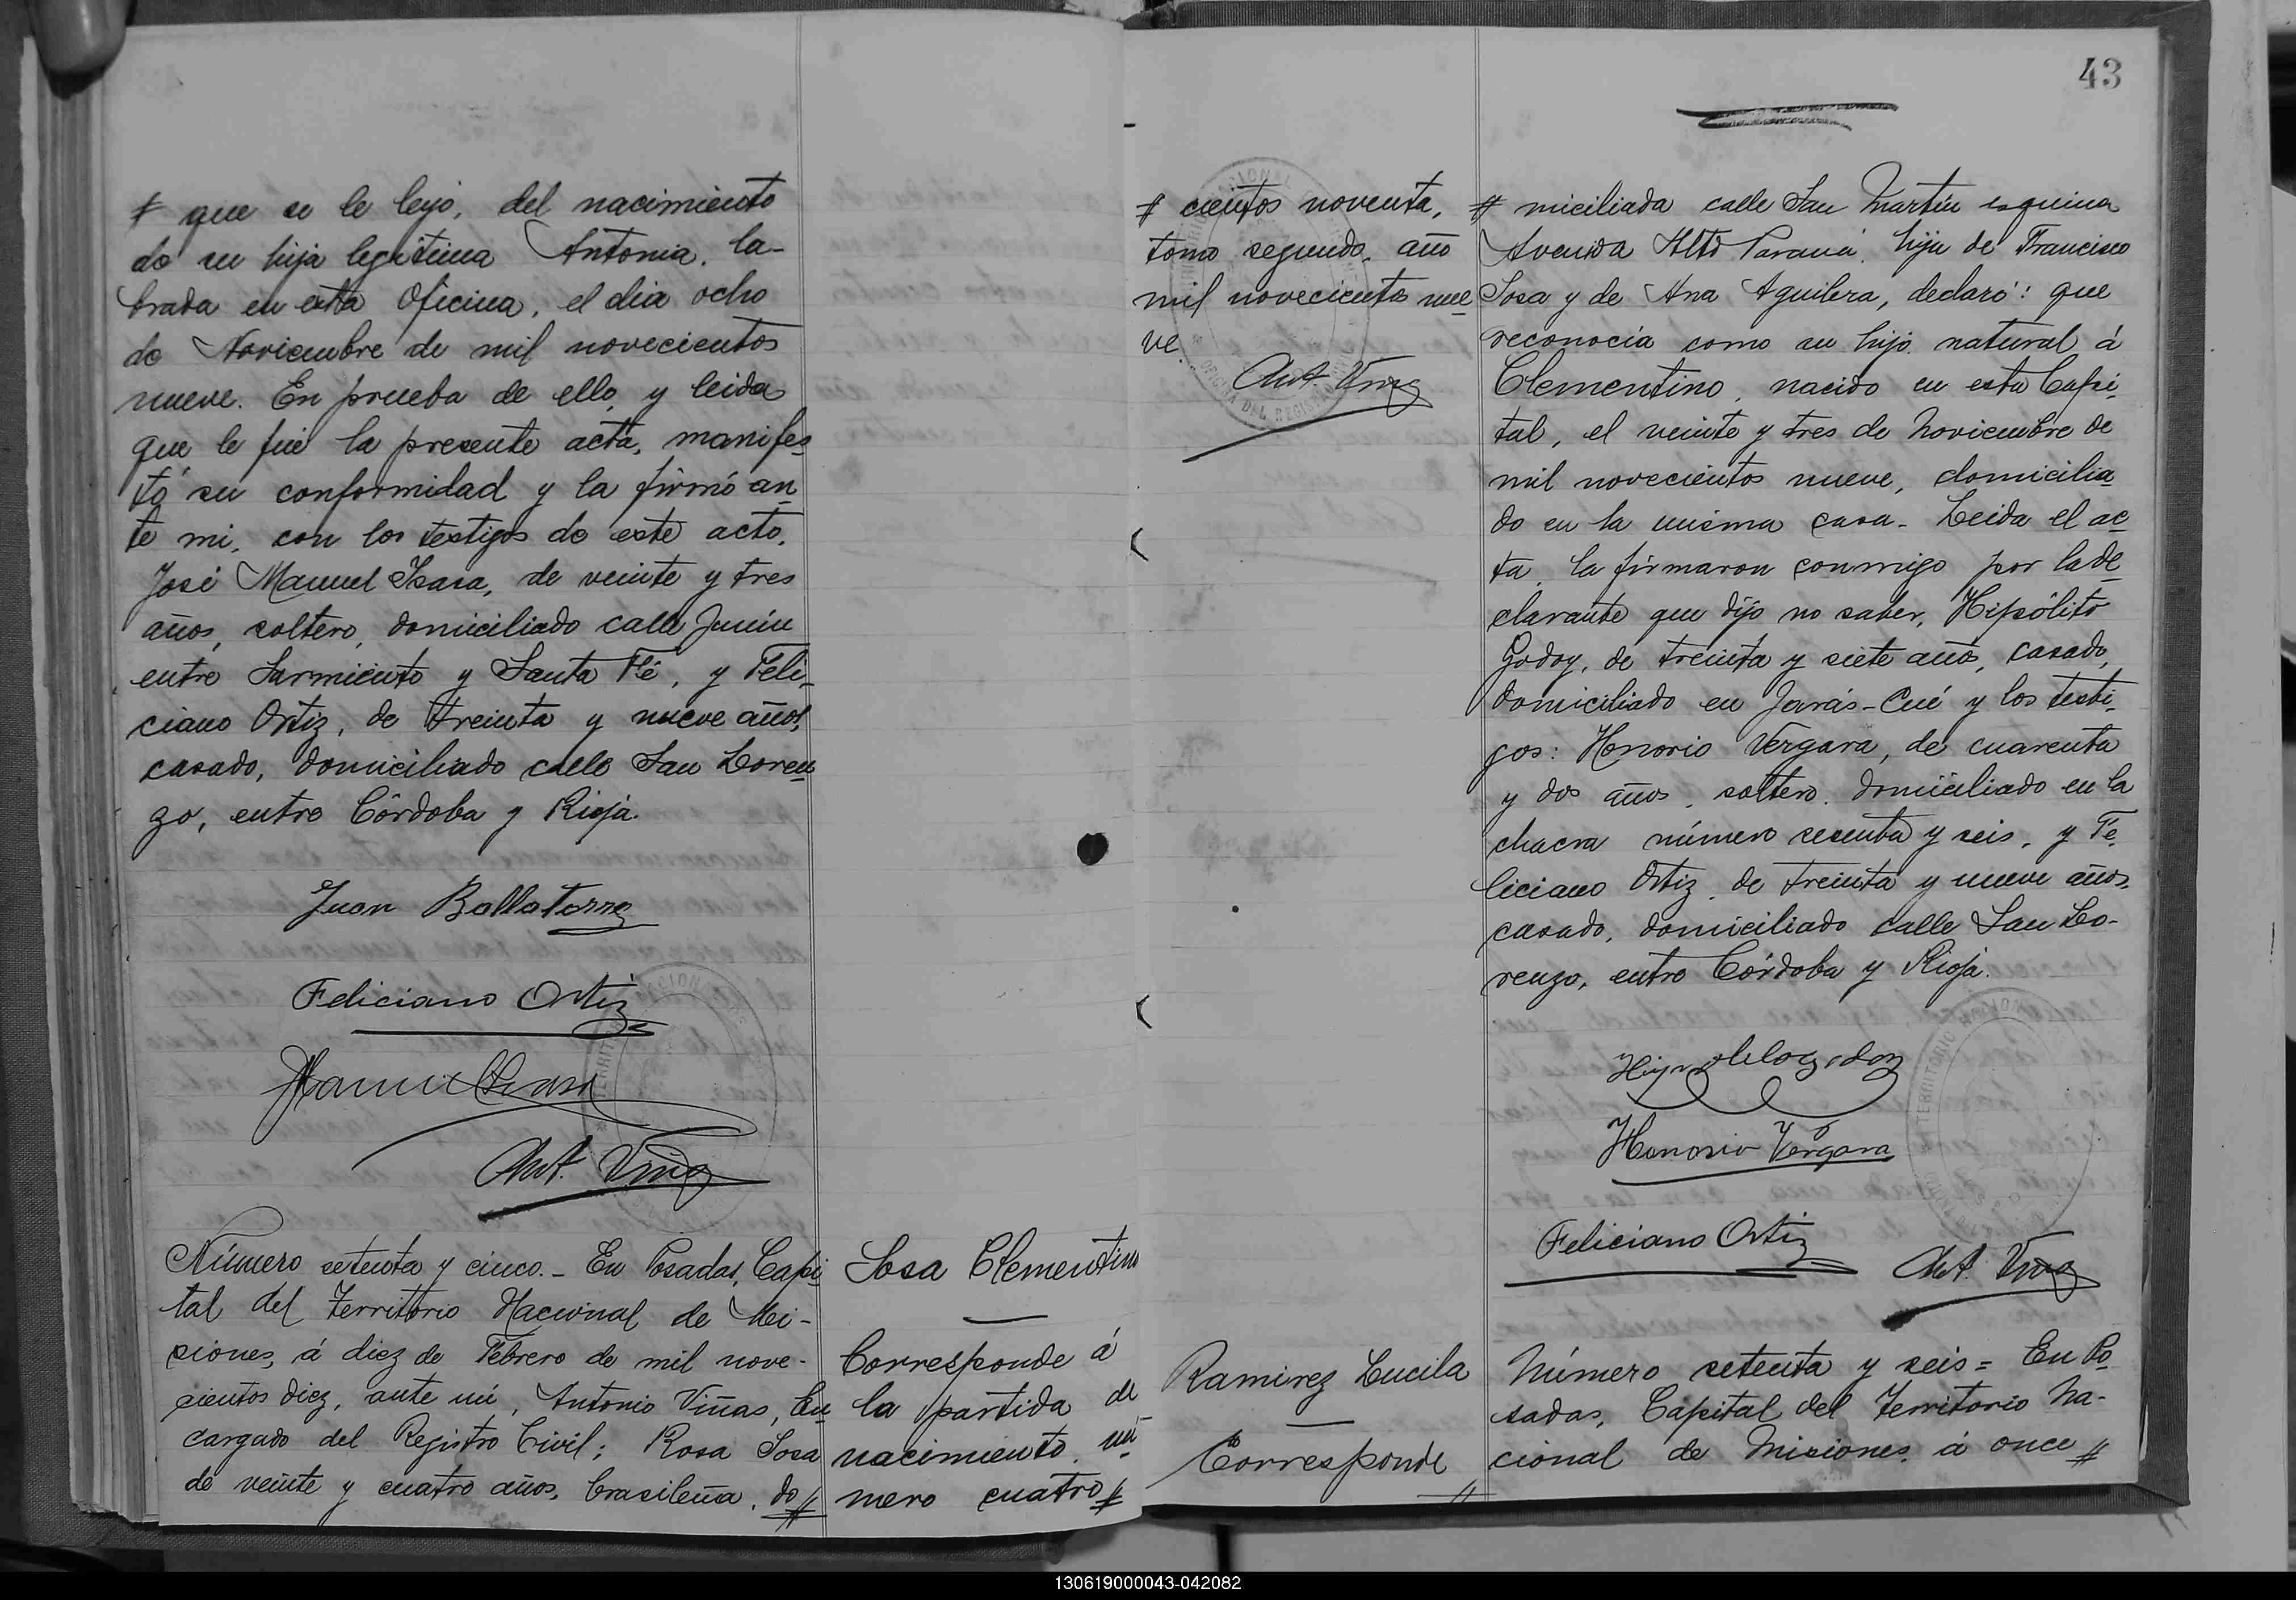 # que se le leyó, del nacimiento
de su hija legítima Antonia, la-
brada en esta Oficina, el dia ocho
de Noviembre de mil novecientos
nueve. En prueba de ello, y leida
que le fué la presente acta, manifes-
tó su conformidad y la firmó an-
te mi, con los testigos de este acto,
José Manuel Isasa, de veinte y tres
años, soltero, domiciliado calle Junín
entre Sarmiento y Santa Fé, y Feli-
ciano Ortiz, de treinta y nueve años,
casado, domiciliado calle San Loren-
zo, entre Córdoba y Rioja.
Juan Ballatorre
Feliciano Ortiz
Manuel Isasa
Ant. Viñas
Número setenta y cinco.- En Posadas, Capi-
tal del Territorio Nacional de Mi-
siones, á diez de Febrero de mil nove-
cientos diez, ante mi, Antonio Viñas, En-
cargado del Registro Civil; Rosa Sosa
de veinte y cuatro años, brasileña, do#
Sosa Clementino
Corresponde á
la partida de
nacimiento nú-
mero cuatro#
43
# cientos noventa,
tomo segundo, año
mil novecientos nue-
ve.
Ant. Viñas
# miciliada calle San Martín esquina
Avenida Alto Paraná, hija de Francisco
Sosa y de Ana Aguilera, declaró: que
reconocia como su hijo natural á
Clementino, nacido en esta Capi-
tal, el veinte y tres de Noviembre de
mil novecientos nueve, domicilia-
do en la misma casa.- Leida el ac-
ta, la firmaron conmigo por la de-
clarante que dijo no saber, Hipólito
Godoy, de treinta y siete años, casado,
domiciliado en Jarás-Cué y los testi-
gos: Honorio Vergara, de cuarenta
y dos años, soltero, domiciliado en la
chacra número sesenta y seis, y Fe-
liciano Ortiz, de treinta y nueve años,
casado, domiciliado calle San Lo-
renzo, entre Córdoba y Rioja.
Honorio Vergara
Feliciano Ortiz
Ant. Viñas
Ramirez Lucila
Corresponde
#
Número setenta y seis = En Po-
sadas, Capital del Territorio Na-
cional de Misiones, á once #
130619000043-042082